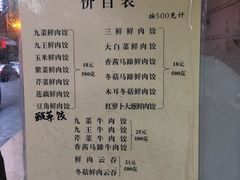 价目表
按500克计
九菜鲜肉饺
九王鲜肉饺
玉米鲜肉饺
紫菜鲜肉饺
芹菜鲜肉饺
莲藕鲜肉饺
豆角鲜肉饺
酸菜饺
18元
500克
三鲜鲜肉饺
大白菜鲜肉饺
香茜马蹄鲜肉饺
冬菇马蹄鲜肉饺
木耳冬菇鲜肉饺
红萝卜大葱鲜肉饺
18元
500克
九菜牛肉饺
九王牛肉饺
芹菜牛肉饺
香茜马蹄牛肉饺
25元
500克
鲜肉云吞
冬菇鲜肉云吞
21元
500克